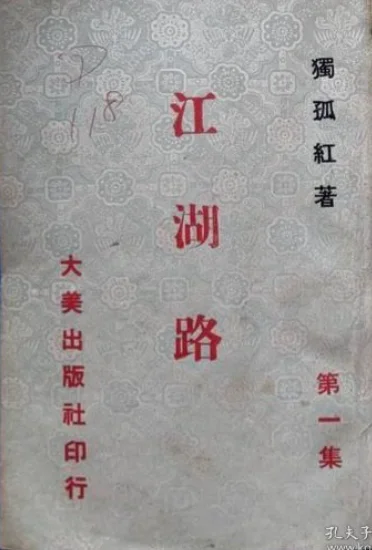 獨孤紅著
第一集
江湖路
大美出版社印行
118
孔夫子